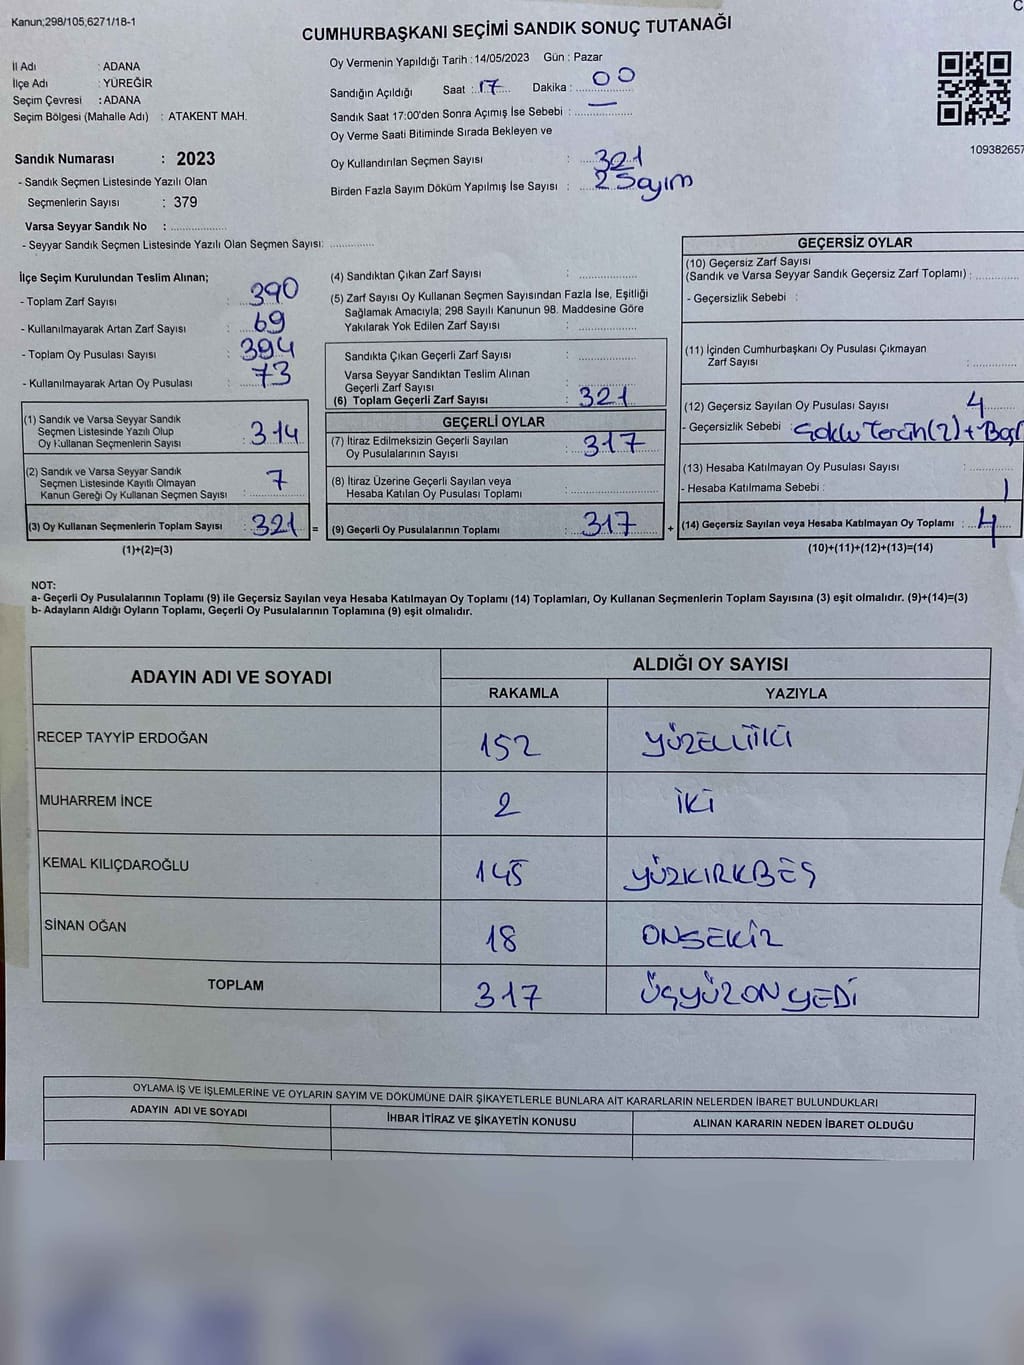 Kanun;298/105,6271/18-1
CUMHURBAŞKANI SEÇİMİ SANDIK SONUÇ TUTANAĞI
İl Adı : ADANA
İlçe Adı : YÜREĞİR
Seçim Çevresi : ADANA
Seçim Bölgesi (Mahalle Adı) : ATAKENT MAH.
Oy Vermenin Yapıldığı Tarih : 14/05/2023 Gün : Pazar
Sandığın Açıldığı Saat : 17 Dakika : 00
Sandık Saat 17:00'den Sonra Açımış İse Sebebi : —
Oy Verme Saati Bitiminde Sırada Bekleyen ve
Oy Kullandırılan Seçmen Sayısı : 321
Birden Fazla Sayım Döküm Yapılmış İse Sayısı : 2 Sayım
109382657
Sandık Numarası : 2023
- Sandık Seçmen Listesinde Yazılı Olan
Seçmenlerin Sayısı : 379
Varsa Seyyar Sandık No : ..................
- Seyyar Sandık Seçmen Listesinde Yazılı Olan Seçmen Sayısı: .............
İlçe Seçim Kurulundan Teslim Alınan;
- Toplam Zarf Sayısı : 390
- Kullanılmayarak Artan Zarf Sayısı : 69
- Toplam Oy Pusulası Sayısı : 394
- Kullanılmayarak Artan Oy Pusulası : 73
(1) Sandık ve Varsa Seyyar Sandık
Seçmen Listesinde Yazılı Olup
Oy Kullanan Seçmenlerin Sayısı : 314
(2) Sandık ve Varsa Seyyar Sandık
Seçmen Listesinde Kayıtlı Olmayan
Kanun Gereği Oy Kullanan Seçmen Sayısı : 7
(3) Oy Kullanan Seçmenlerin Toplam Sayısı : 321 =
(1)+(2)=(3)
(4) Sandıktan Çıkan Zarf Sayısı : ..................
(5) Zarf Sayısı Oy Kullanan Seçmen Sayısından Fazla İse, Eşitliği
Sağlamak Amacıyla; 298 Sayılı Kanunun 98. Maddesine Göre
Yakılarak Yok Edilen Zarf Sayısı : ..................
Sandıkta Çıkan Geçerli Zarf Sayısı : ..................
Varsa Seyyar Sandıktan Teslim Alınan
Geçerli Zarf Sayısı : ..................
(6) Toplam Geçerli Zarf Sayısı : 321
GEÇERLİ OYLAR
(7) İtiraz Edilmeksizin Geçerli Sayılan
Oy Pusulalarının Sayısı : 317
(8) İtiraz Üzerine Geçerli Sayılan veya
Hesaba Katılan Oy Pusulası Toplamı : ..................
(9) Geçerli Oy Pusulalarının Toplamı : 317 +
GEÇERSİZ OYLAR
(10) Geçersiz Zarf Sayısı
(Sandık ve Varsa Seyyar Sandık Geçersiz Zarf Toplamı) : ............
- Geçersizlik Sebebi :
(11) İçinden Cumhurbaşkanı Oy Pusulası Çıkmayan
Zarf Sayısı : ............
(12) Geçersiz Sayılan Oy Pusulası Sayısı : 4
- Geçersizlik Sebebi :
(13) Hesaba Katılmayan Oy Pusulası Sayısı : ............
- Hesaba Katılmama Sebebi :
(14) Geçersiz Sayılan veya Hesaba Katılmayan Oy Toplamı : 4
(10)+(11)+(12)+(13)=(14)
NOT:
a- Geçerli Oy Pusulalarının Toplamı (9) ile Geçersiz Sayılan veya Hesaba Katılmayan Oy Toplamı (14) Toplamları, Oy Kullanan Seçmenlerin Toplam Sayısına (3) eşit olmalıdır. (9)+(14)=(3)
b- Adayların Aldığı Oyların Toplamı, Geçerli Oy Pusulalarının Toplamına (9) eşit olmalıdır.
ADAYIN ADI VE SOYADI
ALDIĞI OY SAYISI
RAKAMLA YAZIYLA
RECEP TAYYİP ERDOĞAN 152 YÜZELLİİKİ
MUHARREM İNCE 2 İKİ
KEMAL KILIÇDAROĞLU 145 YÜZKIRKBEŞ
SİNAN OĞAN 18 ONSEKİZ
TOPLAM 317 ÜÇYÜZONYEDİ
OYLAMA İŞ VE İŞLEMLERİNE VE OYLARIN SAYIM VE DÖKÜMÜNE DAİR ŞİKAYETLERLE BUNLARA AİT KARARLARIN NELERDEN İBARET BULUNDUKLARI
ADAYIN ADI VE SOYADI İHBAR İTİRAZ VE ŞİKAYETİN KONUSU ALINAN KARARIN NEDEN İBARET OLDUĞU